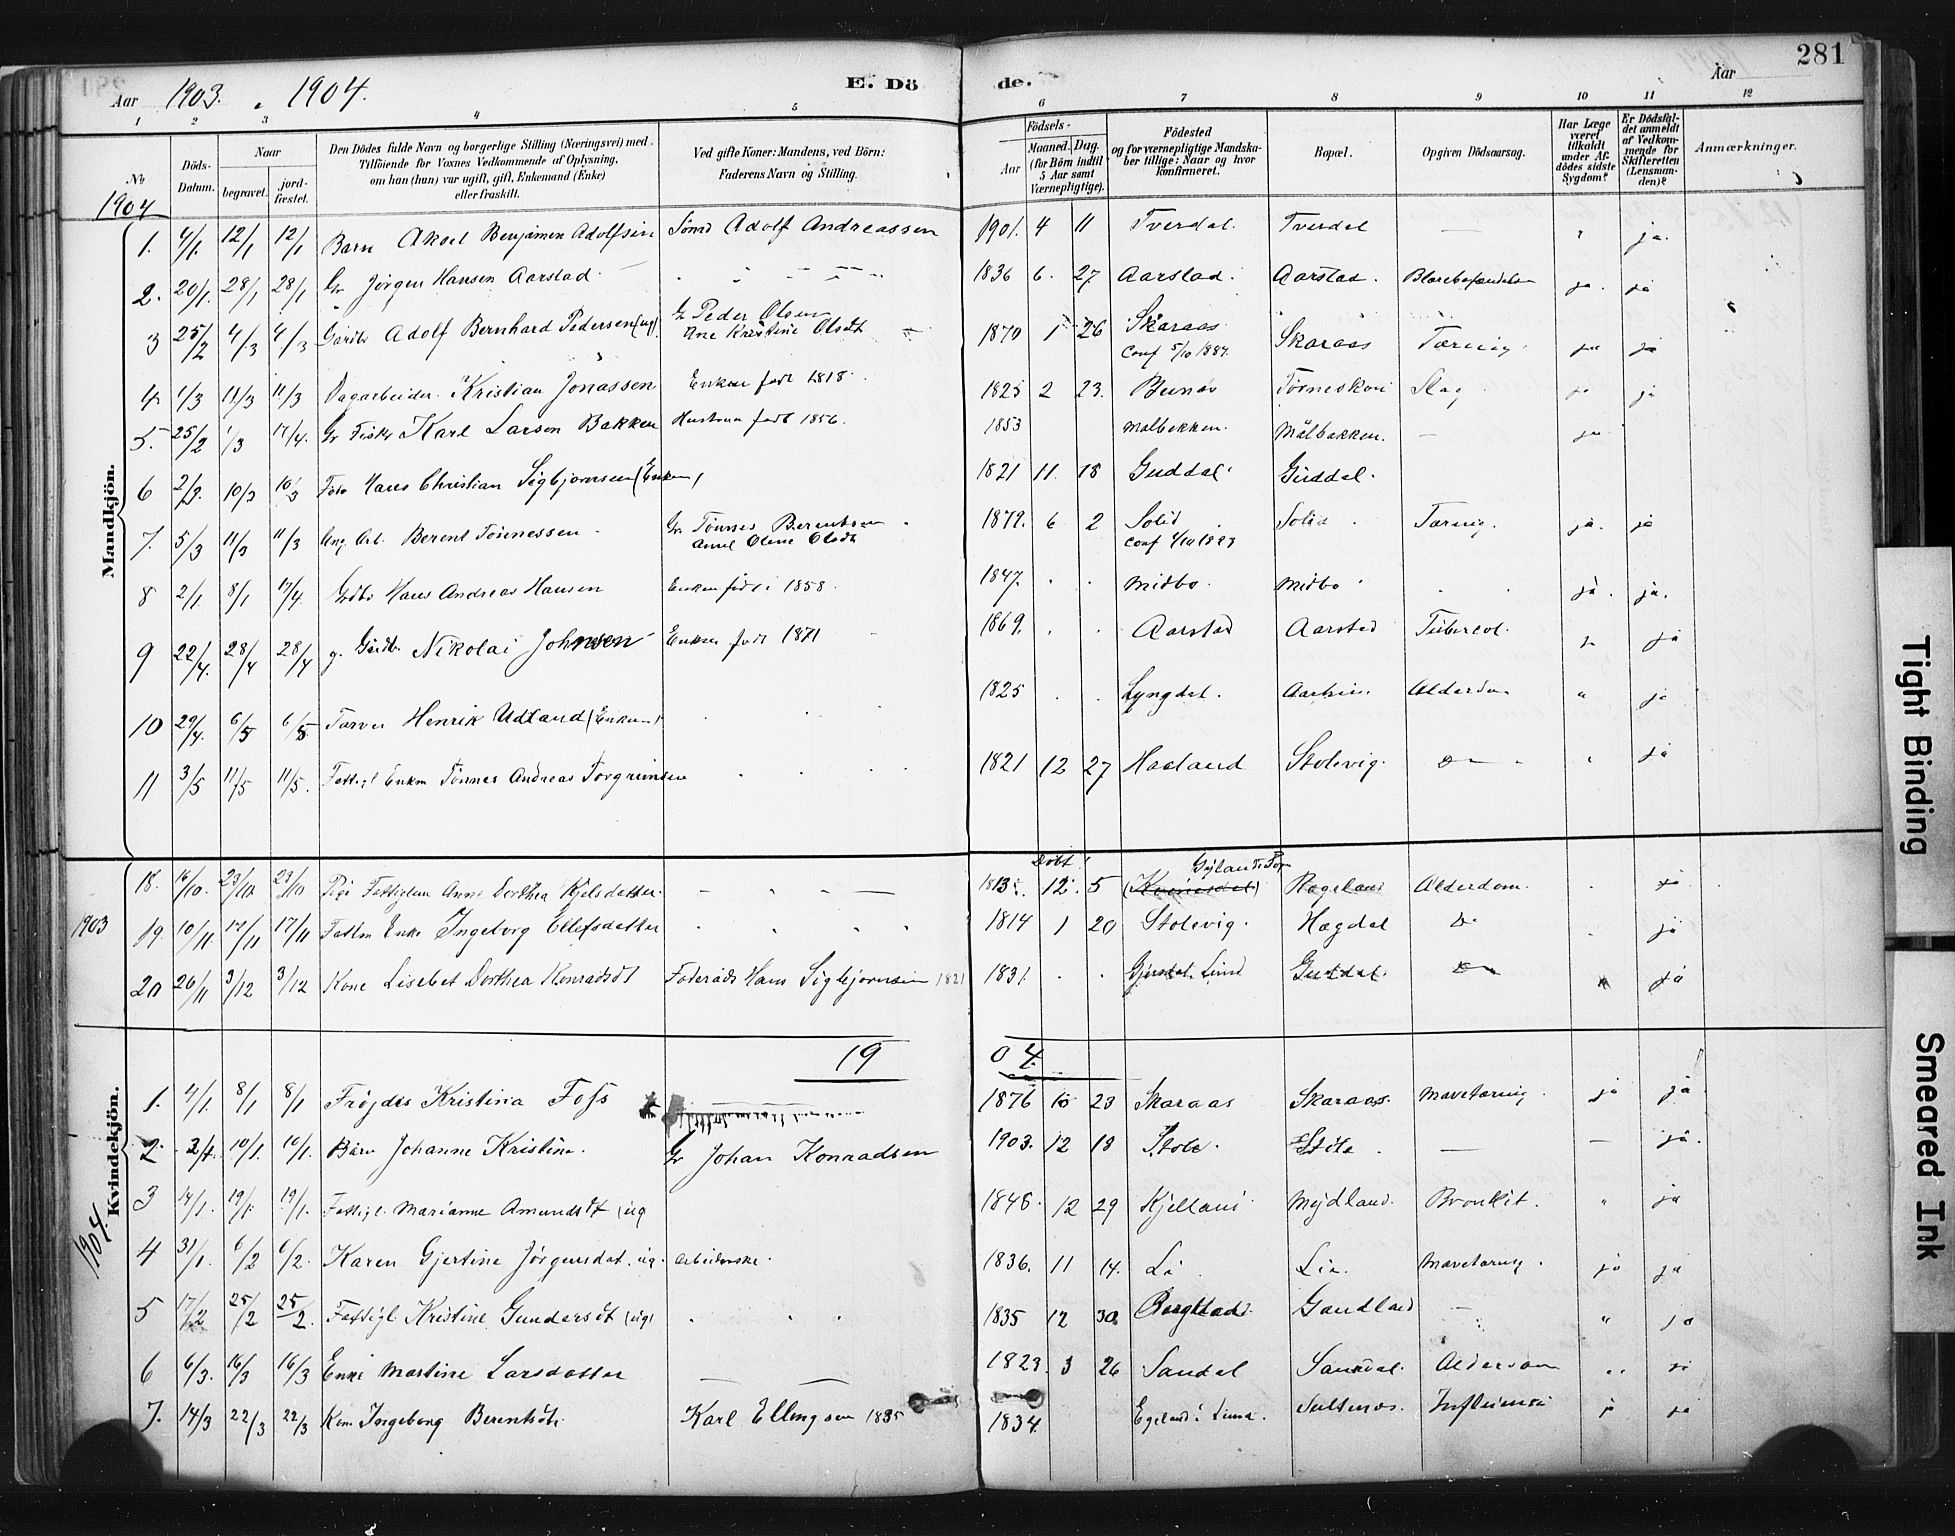 281
Aar 1903. & 1904.
E. Döde.
Aar
1 2 3 4 5 6 7 8 9 10 11 12
№
Döds-Datum.
Naar
begravet.
jord-fæstet.
Den Dödes fulde Navn og borgerlige Stilling (Næringsvei) med Tilföiende for Voxnes Vedkommende af Oplysning, om han (hun) var ugift, gift, Enkemand (Enke) eller fraskilt.
Ved gifte Koner: Mandens, ved Börn: Faderens Navn og Stilling.
Födsels-
Aar
Maaned. Dag.
(for Börn indtil 5 Aar samt Værnepligtige).
Födested og for værnepligtige Mandskaber tillige: Naar og hvor konfirmeret.
Bopæl.
Opgiven Dödsaarsag.
Har Læge været tilkaldt under Afdödes sidste Sygdom?
Er Dödsfaldet anmeldt af Vedkommende for Skifteretten (Lensmanden)?
Anmærkninger.
1904
Mandkjön.
1. 4/1. 12/1 12/1 Barn Aksel Benjamin Adolfsen Adolf Andreassen 1901. 4 11 Tverdal. Tverdal — ja.
2. 20/1. 28/1 28/1 Gr Jörgen Hansen Aarstad 1836 6. 27. Aarstad. Aarstad. ja. ja
3 25/2 4/3 4/3 Gaardbr Adolf Bernhard Pedersen (ug). Gr Peder Olsen Ane Kristine Olsdt 1870 1 26 Skaraas Conf 5/10 1884. Skaraas Tæring. ja ja
4. 1/3 11/3 11/3 Dagarbeider. Kristian Jonassen Enken født 1818. 1825 2 23. Slag ja ja
5. 25/2 1/3 17/4. Gr Fisker Karl Larsen Bakken Hustruen født 1856. 1853 Målbakken. Målbakken. — ja
6 2/3. 10/3 10/3 Hans Christian Sigbjørnsen (Enkem) 1821 11. 18 Guddal Guddal.
7. 5/3 11/3 11/3 Ung. Arb. Berent Tønnessen Gr Tönnes Berentsen Olene Olsdt 1879. 6 2 Solid Solid Tæring. ja. ja
8 2/1. 8/1 17/4. Grdbr Hans Andreas Hansen Enken født i 1858. 1847. Midbø. Midbø ja. ja.
9 22/4. 28/4 28/4 g. Gårdbr. Nikolai Johnsen Enken født 1871 1869. Aarstad Aarstad Tubercol. ja
10 29/4. 6/5 6/5 Henrik Udland (Enkem) 1825 Lyngdal. ja
11 3/5 11/5 11/5. Fattigl Enkm Tönnes Andreas Torgrimsen 1821 12 27 Haaland Stolevig. ja
1903
18. 16/10. 23/10 23/10 Pige Fattiglem Anne Dorthea Kjelsdatter. — 1813. Døbt 12. 5 (Kvinesdal) Gyland Rægeland Alderdom. ja
19. 10/11. 17/11 17/11 Fattlm Enke Ingeborg Ellefsdatter 1814 1 20 Stolevig. Hægdal Do ja
20 26/11 3/12 3/12 Kone Lisebet Dorthea Konradsdt Føderåds Hans Sigbjørnsen 1821 1831. Lund Guddal. Do ja
1904.
1904.
Kvindekjön.
1. 4/1. 8/1 8/1 Frøydis Kristina Foss 1876 10 23 Skaraas Skaraas. Mavetæring. ja ja
2. 2/1. 10/1. 10/1. Barn Johanne Kristine. Gr Johan Konradsen 1903. 12 18 Støle. Støle. — ja.
3 14/1. 19/1. 19/1. Fattigl. Marianne Amundsdt (ug 1848. 12 29 Kjelland Mydland. Bronkit. " ja
4 31/1. 6/2 6/2. Karen Gjertine Jörgensdat. ug. Arbeiderske. 1836. 11 14. Li Lia. Mavetæring. ja ja
5 17/2 25/2 25/2. Fattigl Kristine Gundersdt (ug) 1835 12 30. Bergstad. Gaudland — " ja
6 6/3. 16/3 16/3 Enke Martine Larsdatter — 1823. 3 26 Sandal Sandal. Alderdom ja
7. 14/3 22/3 22/3 Kone Ingeborg Berentsdt. Karl Ellingsen 1835 1834. Egeland i Lund. Influensa ja ja
Tight Binding
Smeared Ink